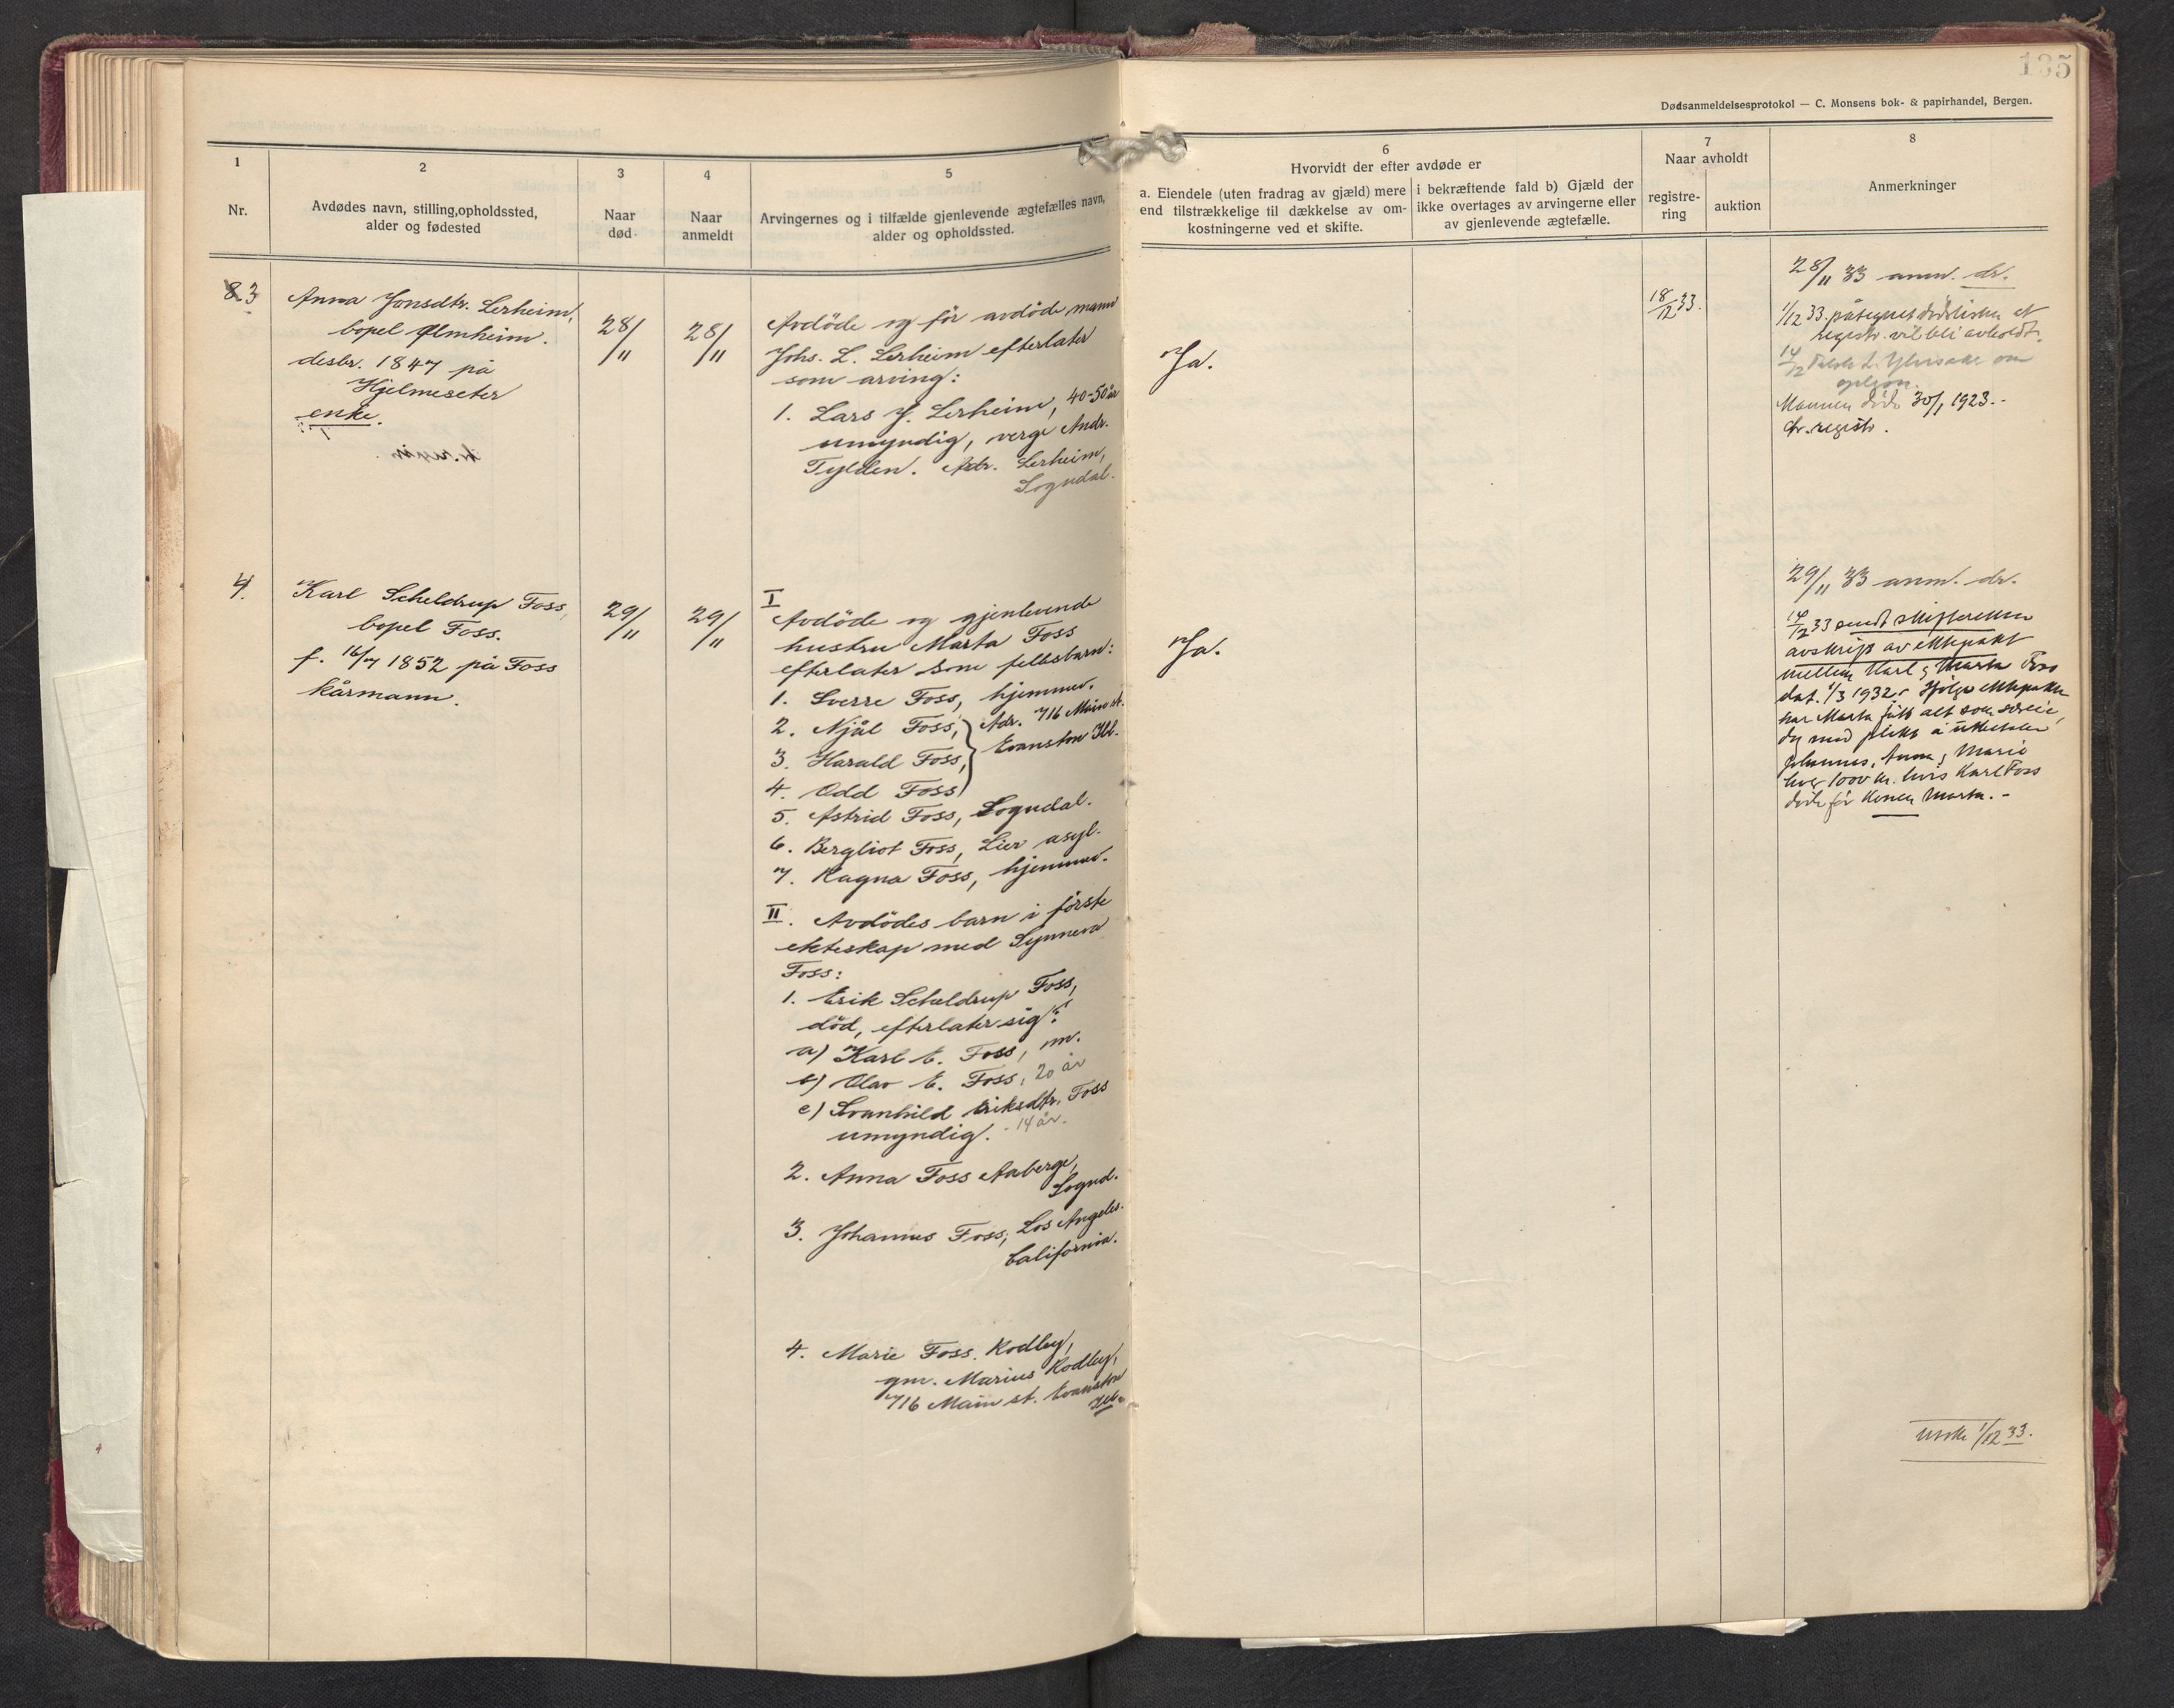 135
Dødsanmeldelsesprotokol — C. Monsens bok- & papirhandel, Bergen.
1
Nr.
2
Avdødes navn, stilling, opholdssted,
alder og fødested
3
Naar
død
4
Naar
anmeldt
5
Arvingernes og i tilfælde gjenlevende ægtefælles navn,
alder og opholdssted.
6
Hvorvidt der efter avdøde er
a. Eiendele (uten fradrag av gjæld) mere
end tilstrækkelige til dækkelse av om-
kostningerne ved et skifte.
i bekræftende fald b) Gjæld der
ikke overtages av arvingerne eller
av gjenlevende ægtefælle.
7
Naar avholdt
registre-
ring
auktion
8
Anmerkninger
3
Anna Jonsdtr. Lerheim,
bopel Ølmheim.
desbr. 1847 på
Hjelmeseter
enke.
28/11
28/11
Avdöde og för avdöde mann
Johs. L. Lerheim efterlater
som arving:
1. Lars J. Lerheim, 40-50 år
umyndig, verge Andr.
Tylden. Adr. Lerheim,
Sogndal.
Ja.
18/12 33.
28/11 33 anm. dr.
1/12 33. påtegnet dødslisten at
registr. vil bli avholdt.
14/12
Mannen döde 30/1 1923.-
dr. registr.
4.
Karl Scheldrup Foss,
bopel Foss.
f. 16/7 1852 på Foss
kårmann.
29/11
29/11
I
Avdöde og gjenlevende
hustru Marta Foss
efterlater som fellesbarn:
1. Sverre Foss, hjemmev.
2. Njål Foss, Adr. 716 Main st.
3. Harald Foss, Evanston Ill.
4. Odd Foss
5. Astrid Foss, Sogndal.
6. Bergliot Foss, Lier asyl.
7. Ragna Foss, hjemmev.
II. Avdödes barn i förste
ekteskap med Synneva
Foss:
1. Erik Scheldrup Foss,
död, efterlater sig:
a) Karl E. Foss, m.
b) Olav E. Foss, 20 år
c) Svanhild Eriksdtr. Foss
umyndig. - 14 år.
2. Anna Foss Aaberge,
Sognd.
3. Johannes Foss, Los Angeles.
California.
4. Marie Foss Rodley,
gm. Marius Rodley,
716 Main st. Evanston
Ill.
Ja.
29/11 33 anm. dr.
14/12 33 sendt skifteretten
avskrift av ektepakt
mellem Karl & Marta Foss
dat. 1/3 1932. Ifölge ektepakten
har Marta fått alt som særeie,
dog med plikt å utbetale
Johannes, Anna & Marie
hver 1000 kr. hvis Karl Foss
döde för konen Marta. -
1/12 33.